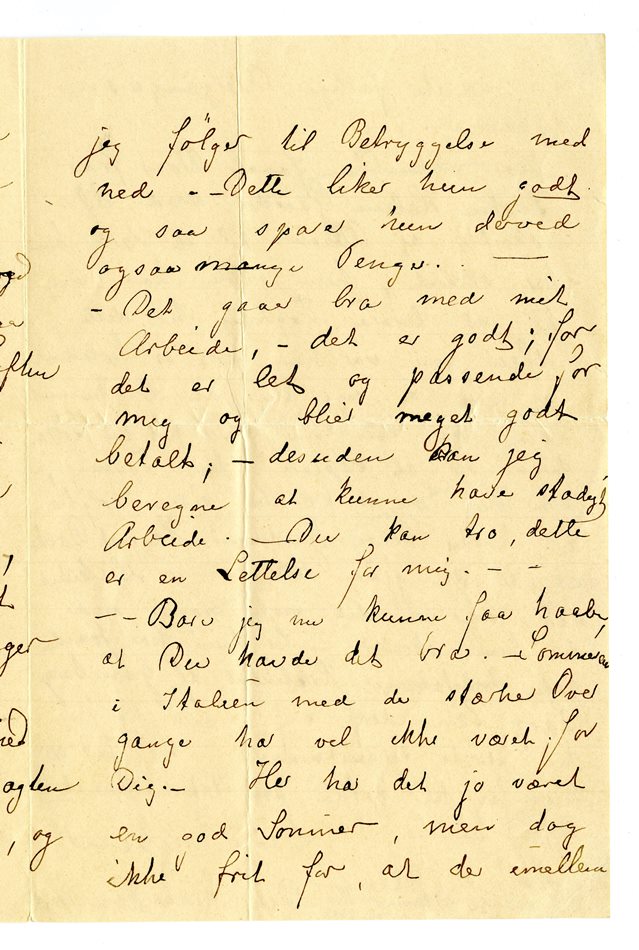 jeg følger til Betryggelse med
ned - - Dette liker hun godt.
og saa sparer hun derved
ogsaa mange Penge. —
- Det gaar bra med mit
Arbeide, - det er godt; for
det er let og passende for
mig og blir meget godt
betalt; - desuden kan jeg
beregne at kunne have stadigt
Arbeide. - Du kan tro, dette
er en Lettelse for mig. - -
- - Bare jeg nu kunne faa haabe,
at Du havde det bra. - Sommeren
i Italien med de stærke Over
gange har vel ikke været for
Dig. - Her har det jo været
en god Sommer, men dog
ikke frit for, at der imellem
ged
aften
ger
agten
, og